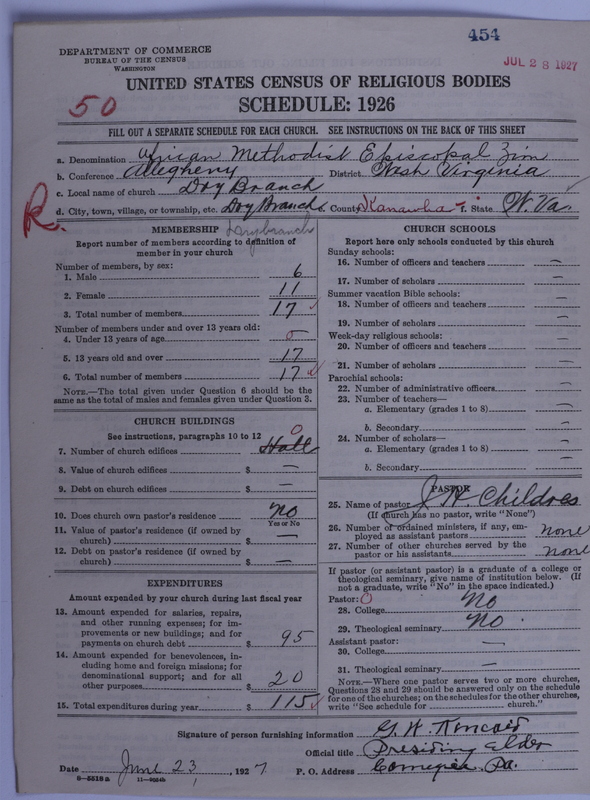 454
DEPARTMENT OF COMMERCE
BUREAU OF THE CENSUS
WASHINGTON
JUL 28 1927
UNITED STATES CENSUS OF RELIGIOUS BODIES
SCHEDULE: 1926
50
FILL OUT A SEPARATE SCHEDULE FOR EACH CHURCH. SEE INSTRUCTIONS ON THE BACK OF THIS SHEET
a. Denomination African Methodist Episcopal Zion
b. Conference Allegheny District West Virginia
c. Local name of church Dry Branch
d. City, town, village, or township, etc. Dry Branch County Kanawha State W. Va.
R.
Drybranch
MEMBERSHIP
Report number of members according to definition of
member in your church
Number of members, by sex:
1. Male 6
2. Female 11
3. Total number of members 17
Number of members under and over 13 years old:
4. Under 13 years of age 0
5. 13 years old and over 17
6. Total number of members 17
NOTE.—The total given under Question 6 should be
same as the total of males and females given under Question 3.
CHURCH BUILDINGS
See instructions, paragraphs 10 to 12 0
7. Number of church edifices Hall
8. Value of church edifices $ —
9. Debt on church edifices $ —
10. Does church own pastor's residence no
Yes or No
11. Value of pastor's residence (if owned by
church) $ —
12. Debt on pastor's residence (if owned by
church) $ —
EXPENDITURES
Amount expended by your church during last fiscal year
13. Amount expended for salaries, repairs,
and other running expenses; for im-
provements or new buildings; and for
payments on church debt $ 95
14. Amount expended for benevolences, in-
cluding home and foreign missions; for
denominational support; and for all
other purposes $ 20
15. Total expenditures during year $ 115
CHURCH SCHOOLS
Report here only schools conducted by this church
Sunday schools:
16. Number of officers and teachers —
17. Number of scholars —
Summer vacation Bible schools:
18. Number of officers and teachers —
19. Number of scholars —
Week-day religious schools:
20. Number of officers and teachers —
21. Number of scholars —
Parochial schools:
22. Number of administrative officers —
23. Number of teachers—
a. Elementary (grades 1 to 8) —
b. Secondary —
24. Number of scholars—
a. Elementary (grades 1 to 8) —
b. Secondary —
PASTOR
25. Name of pastor J. H. Childres
(If church has no pastor, write "None")
26. Number of ordained ministers, if any, em-
ployed as assistant pastors none
27. Number of other churches served by the
pastor or his assistants none
If pastor (or assistant pastor) is a graduate of a college or
theological seminary, give name of institution below. (If
not a graduate, write "No" in the space indicated.)
Pastor: 0
28. College No
29. Theological seminary No
Assistant pastor:
30. College —
31. Theological seminary —
NOTE.—Where one pastor serves two or more churches,
Questions 28 and 29 should be answered only on the schedule
for one of the churches; on the schedules for the other churches,
write "See schedule for church."
Signature of person furnishing information G. W. Kincaid
Official title Presiding Elder
Date June 23, 1927 P. O. Address Pa.
8—5518a